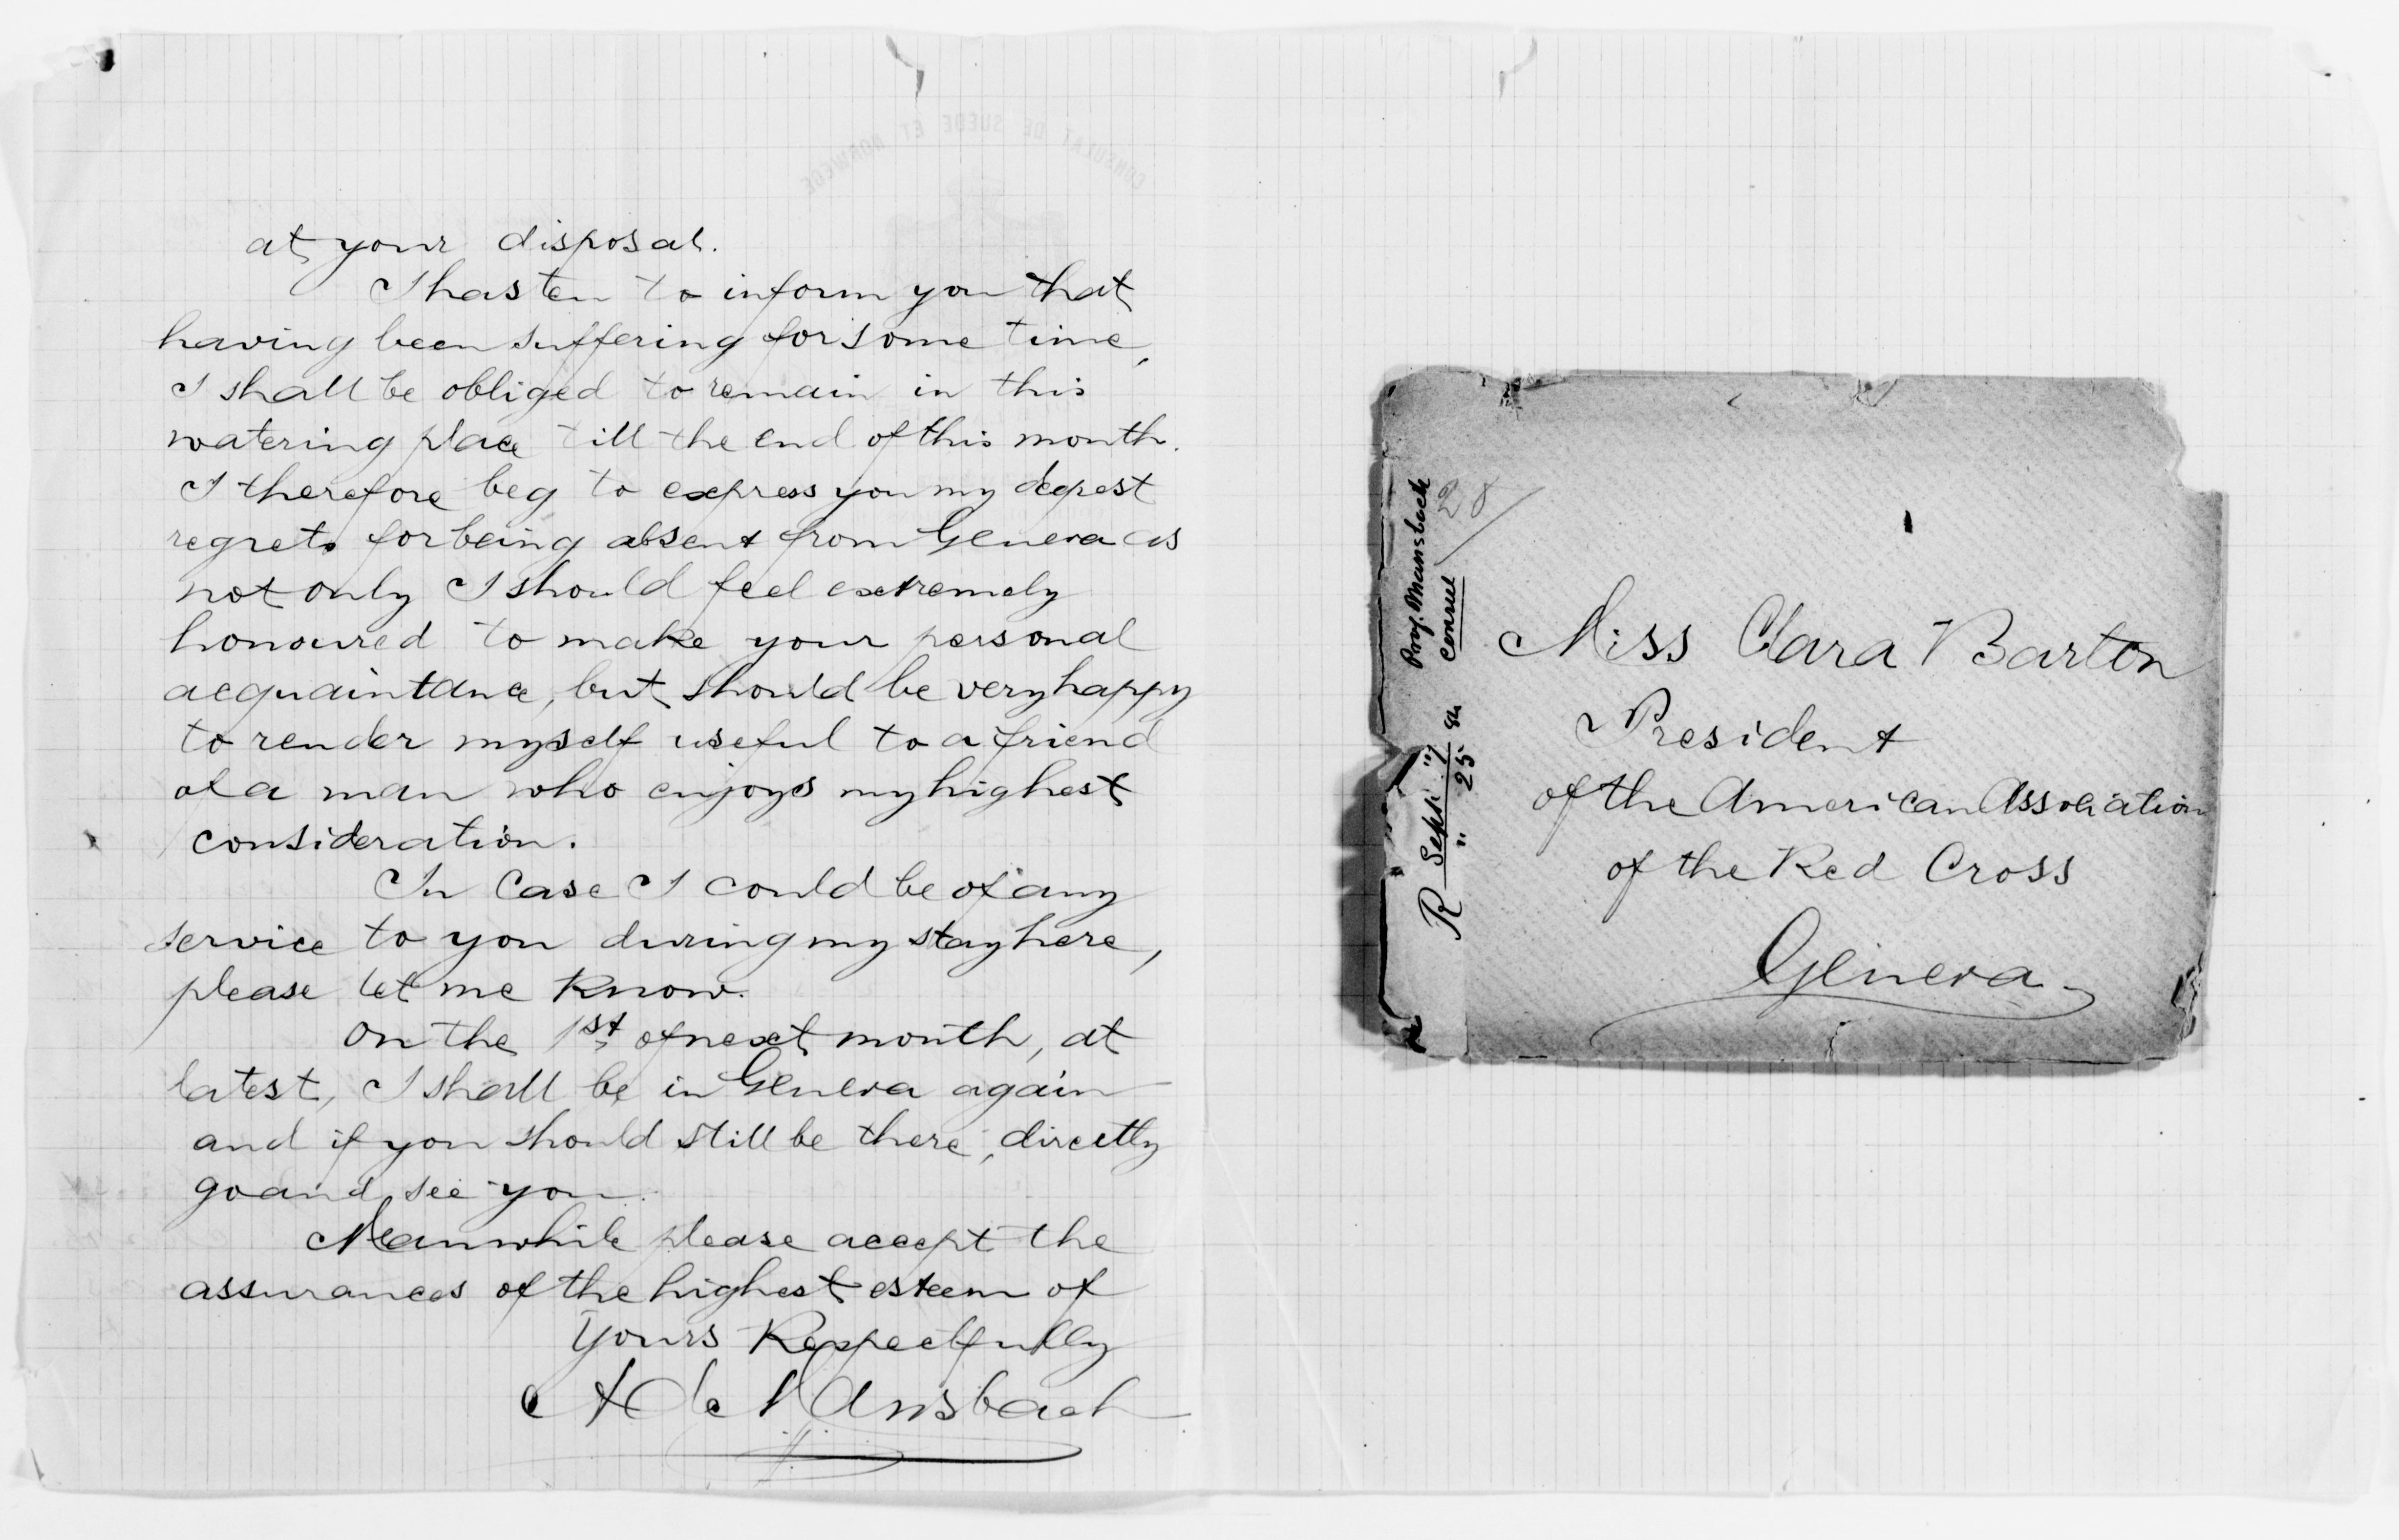 CONSULAT DE SUEDE ET NORWEGE
at your disposal.
I hasten to inform you that
having been suffering for some time,
I shall be obliged to remain in this
watering place till the end of this month.
I therefore beg to express you my depest
regrets for being absent from Geneva as
not only I should feel extremely
honoured to make your personal
acquaintance, but should be very happy
to render myself useful to a friend
of a man who enjoys my highest
consideration.
In Case I could be of any
service to you during my stay here,
please let me Know.
On the 1st of next month, at
latest, I shall be in Geneva again
and if you should still be there, directly
go and see you.
Meanwhile please accept the
assurances of the highest esteem of
Yours Respectfully
A de Mansbach
28
Mansbach
Consul
R Sept. "7
" 25 84
Miss Clara Barton
President
of the American Association
of the Red Cross
Geneva